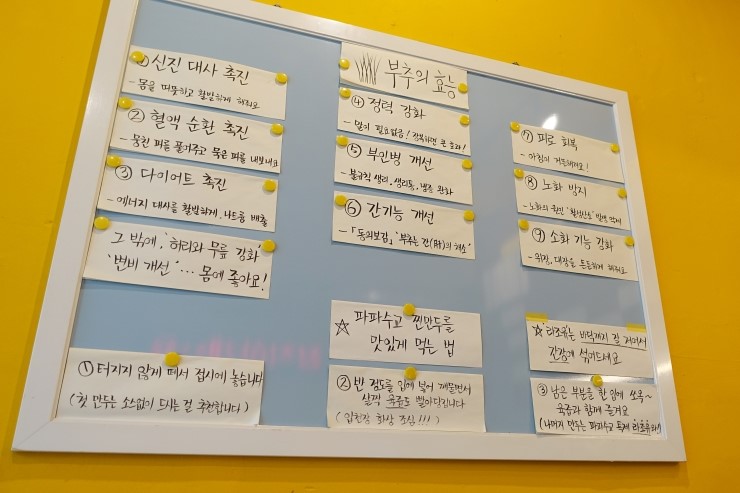 부추의 효능
① 신진 대사 촉진
- 몸을 따뜻하고 활발하게 해줘요
② 혈액 순환 촉진
- 뭉친 피를 풀어주고 묵은 피를 내보내요
③ 다이어트 촉진
- 에너지 대사를 활발하게, 나트륨 배출
그 밖에, '허리와 무릎 강화'
'변비 개선' … 몸에 좋아요!
④ 정력 강화
- 말이 필요없음! 장복하면 큰 효과!
⑤ 부인병 개선
- 불규칙 생리, 생리통, 냉증 완화
⑥ 간기능 개선
- 「동의보감」 '부추는 간(肝)의 채소'
⑦ 피로 회복
- 아침이 거뜬해져요!
⑧ 노화 방지
- 노화의 원인 '활성산소' 발생 억제
⑨ 소화 기능 강화
- 위장, 대장을 튼튼하게 해줘요
☆ 파파수교 찐만두를
맛있게 먹는 법
① 터지지 않게 떼서 접시에 놓습니다
(첫 만두는 소스없이 드시는 걸 추천합니다)
② 반 정도를 입에 넣어 깨물면서
살짝 육즙도 빨아당깁니다
(입천장 화상 조심!!!)
☆ 라조유는 바닥까지 잘 저어서
간장에 섞어드세요
③ 남은 부분을 한 입에 쏘옥~
육즙과 함께 즐겨요
(나머지 만두는 파파수교 특제 라조유와!!)